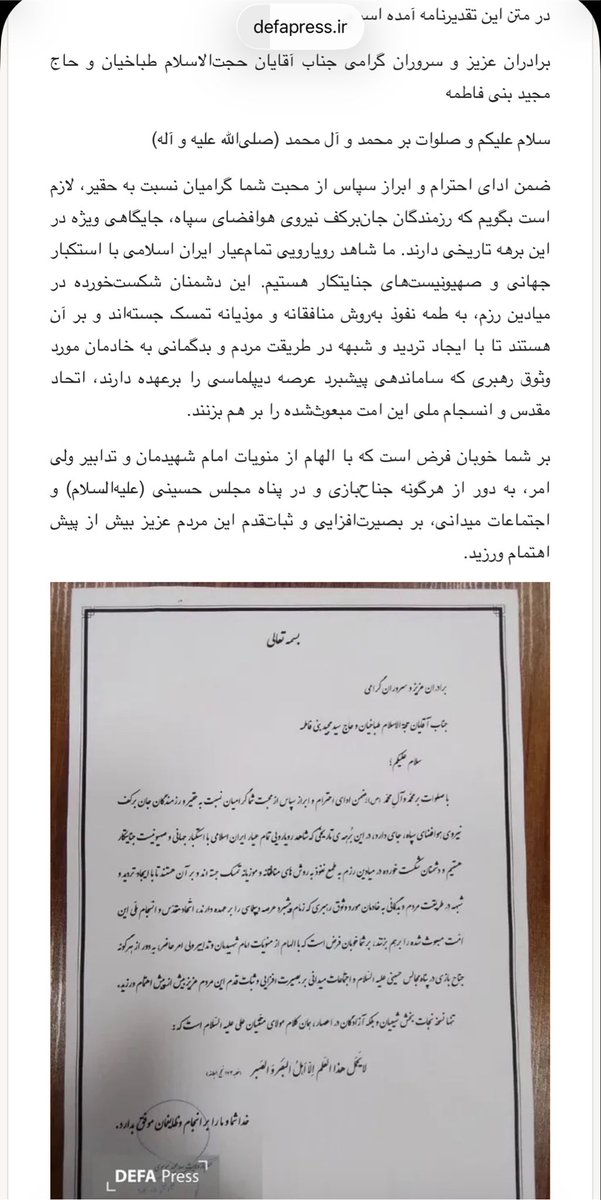 در متن این تقدیرنامه آمده
defapress.ir
برادران عزیز و سروران گرامی جناب آقایان حجت‌الاسلام طباخیان و حاج
مجید بنی فاطمه
سلام علیکم و صلوات بر محمد و آل محمد (صلی‌الله علیه و آله)
ضمن ادای احترام و ابراز سپاس از محبت شما گرامیان نسبت به حقیر، لازم
است بگویم که رزمندگان جان‌برکف نیروی هوافضای سپاه، جایگاهی ویژه در
این برهه تاریخی دارند. ما شاهد رویارویی تمام‌عیار ایران اسلامی با استکبار
جهانی و صهیونیست‌های جنایتکار هستیم. این دشمنان شکست‌خورده در
میادین رزم، به طمه نفوذ به‌روش منافقانه و موذیانه تمسک جسته‌اند و بر آن
هستند تا با ایجاد تردید و شبهه در طریقت مردم و بدگمانی به خادمان مورد
وثوق رهبری که ساماندهی پیشبرد عرصه دیپلماسی را برعهده دارند، اتحاد
مقدس و انسجام ملی این امت مبعوث‌شده را بر هم بزنند.
بر شما خوبان فرض است که با الهام از منویات امام شهیدمان و تدابیر ولی
امر، به دور از هرگونه جناح‌بازی و در پناه مجلس حسینی (علیه‌السلام) و
اجتماعات میدانی، بر بصیرت‌افزایی و ثبات‌قدم این مردم عزیز بیش از پیش
اهتمام ورزید.
بسمه تعالی
برادران عزیز و سروران گرامی
جناب آقایان حجة الاسلام طباخیان و حاج سید مجید بنی فاطمه
سلام علیکم؛
با صلوات بر محمد و آل محمد (ص) ضمن ادای احترام و ابراز سپاس از محبت شما گرامیان نسبت به حقیر و رزمندگان جان برکف
نیروی هوافضای سپاه، جای دارد، در این بُرهه‌ی تاریخی که شاهد رویارویی تمام عیار ایران اسلامی با استکبار جهانی و صهیونیست جنایتکار
هستیم و دشمنان شکست خورده در میادین رزم به طمع نفوذ به روش های منافقانه و موزیانه تمسک جسته اند و بر آن هستند تا با ایجاد تردید و
شبهه در طریقت مردم و بدگمانی به خادمان مورد وثوق رهبری که زمام پیشبرد عرصه دیپلماسی را بر عهده دارند، اتحاد مقدس و انسجام ملی این
امت مبعوث شده را برهم بزنند، بر شما خوبان فرض است که با الهام از منویات امام شهیدمان و تدابیر ولی امر حاضر، به دور از هرگونه
جناح بازی در پناه مجالس حسینی علیه السلام و اجتماعات میدانی بر بصیرت افزایی و ثبات قدم این مردم عزیز بیش از پیش اهتمام ورزید.
تنها نسخه نجات بخش شیعیان و بلکه آزادگان در اعصار، همان کلام مولای متقیان علی علیه السلام است که:
لا یَحمِلُ هذا العَلَم إلّا أهلُ البَصَرِ وَ الصَبر
خدا شما و ما را بر انجام وظایفمان موفق بدارد.
DEFA Press